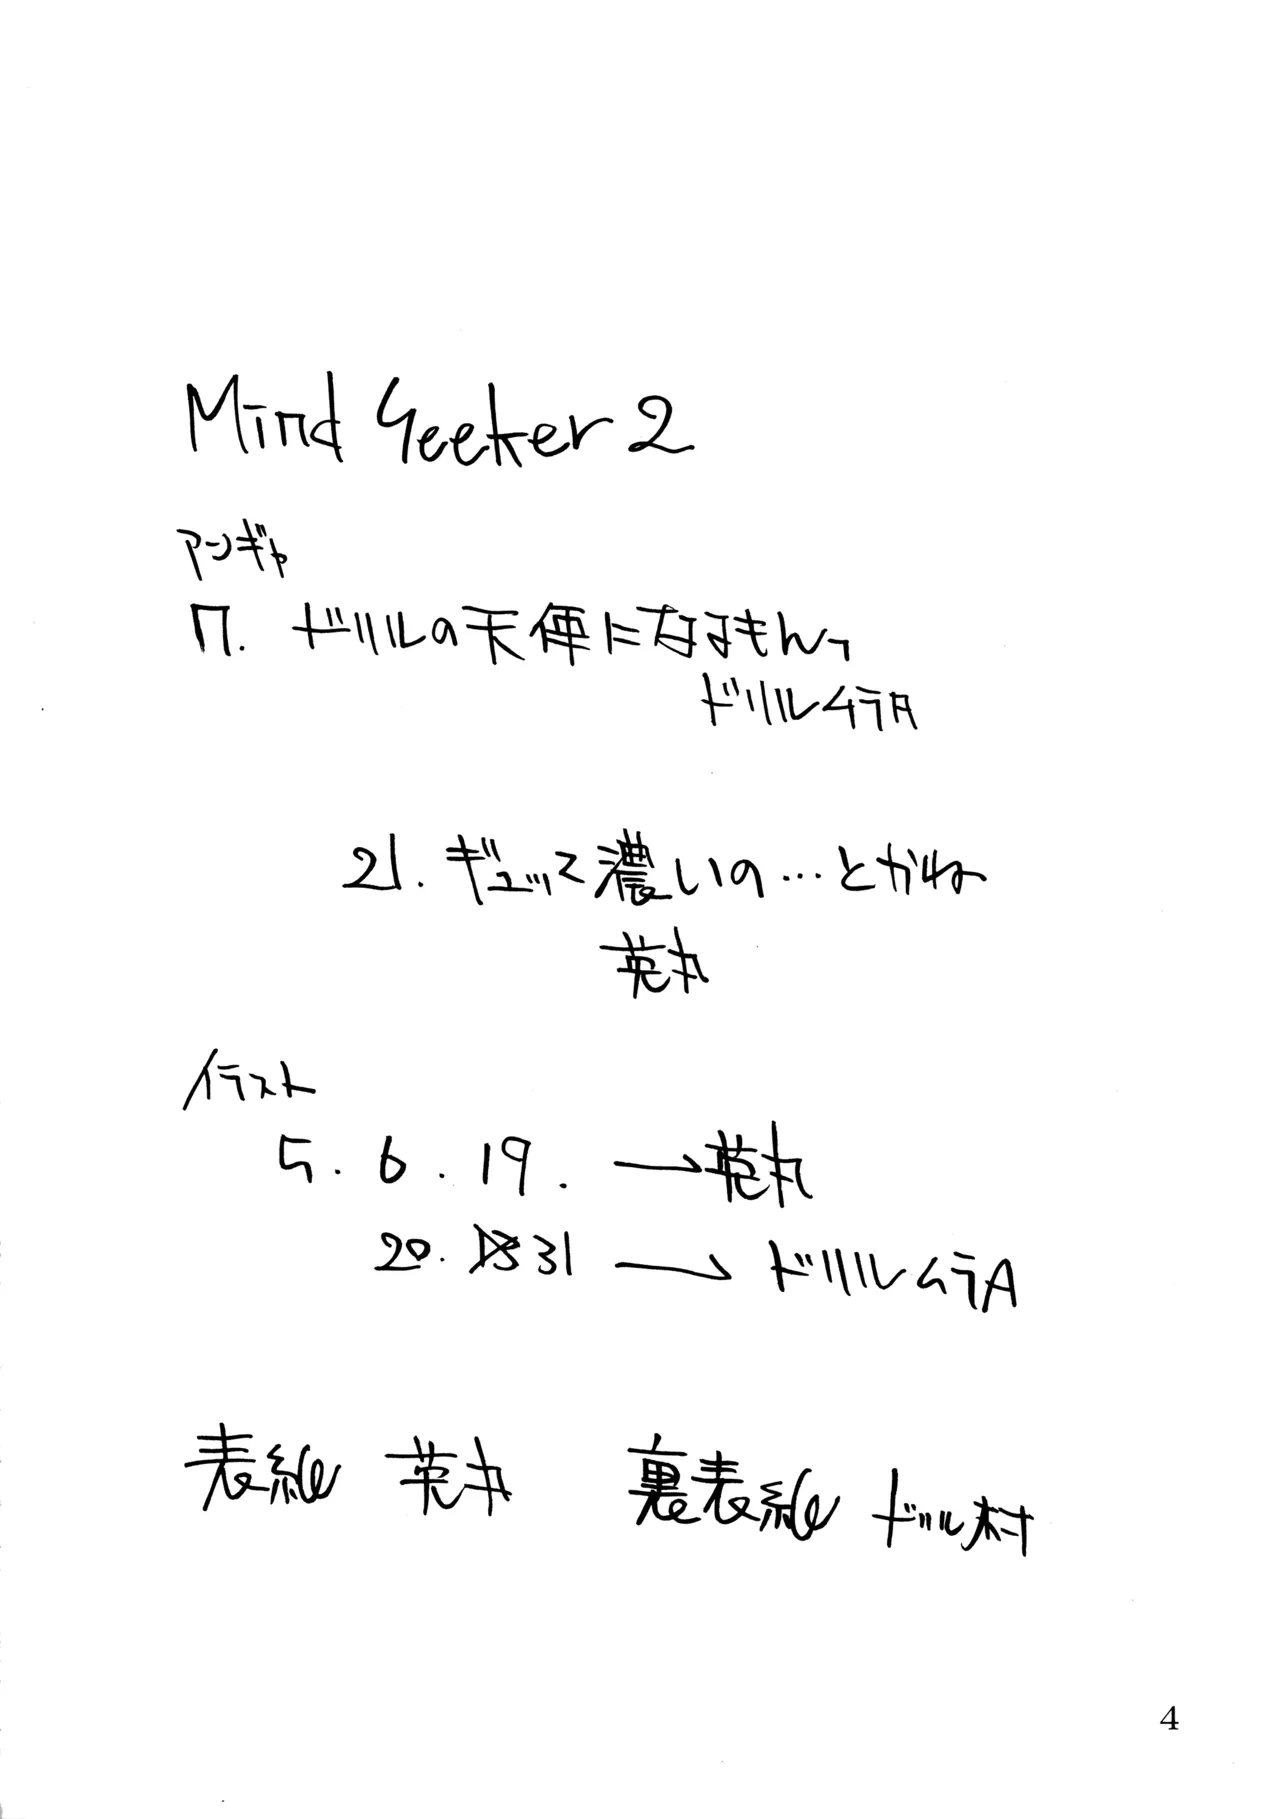 Mind Seeker 2
アンギャ
7. ドリルの天使になるもんっ
ドリルムラA
21. ギュッと濃いの…とかね
英丸
イラスト
5. 6. 19. → 英丸
20. 31 → ドリルムラA
表紙 英丸 裏表紙 ドリル村
4